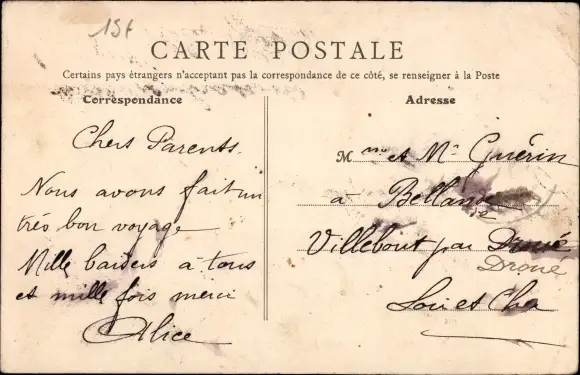 15f
CARTE POSTALE
Certains pays étrangers n'acceptent pas la correspondance de ce côté, se renseigner à la Poste
Correspondance
Adresse
Chers Parents.
Nous avons fait un
très bon voyage
Mille baisers à tous
et mille fois merci
Alice
Mme et Mr Guérin
à Bellande
Villebout par Droué
Droué
Loir et Cher